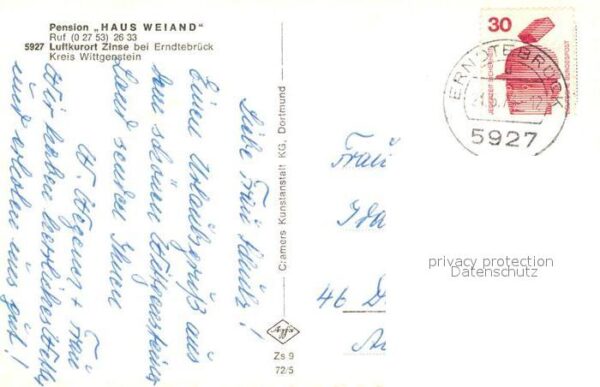 Pension „HAUS WEIAND"
Ruf (0 27 53) 26 33
5927 Luftkurort Zinse bei Erndtebrück
Kreis Wittgenstein
Liebe Frau Schulz!
Einen Urlaubsgruß aus
dem schönen Wittgensteiner
Land senden Ihnen
H. Wegener + Frau
Wir haben herrliches Wetter
und erholen uns gut!
Cramers Kunstanstalt KG, Dortmund
Agfa
Zs 9
72/5
Frau
Ida
46 D
30
JEDERZEIT SICHERHEIT
DEUTSCHE BUNDESPOST
ERNDTEBRÜCK
5927
privacy protection
Datenschutz